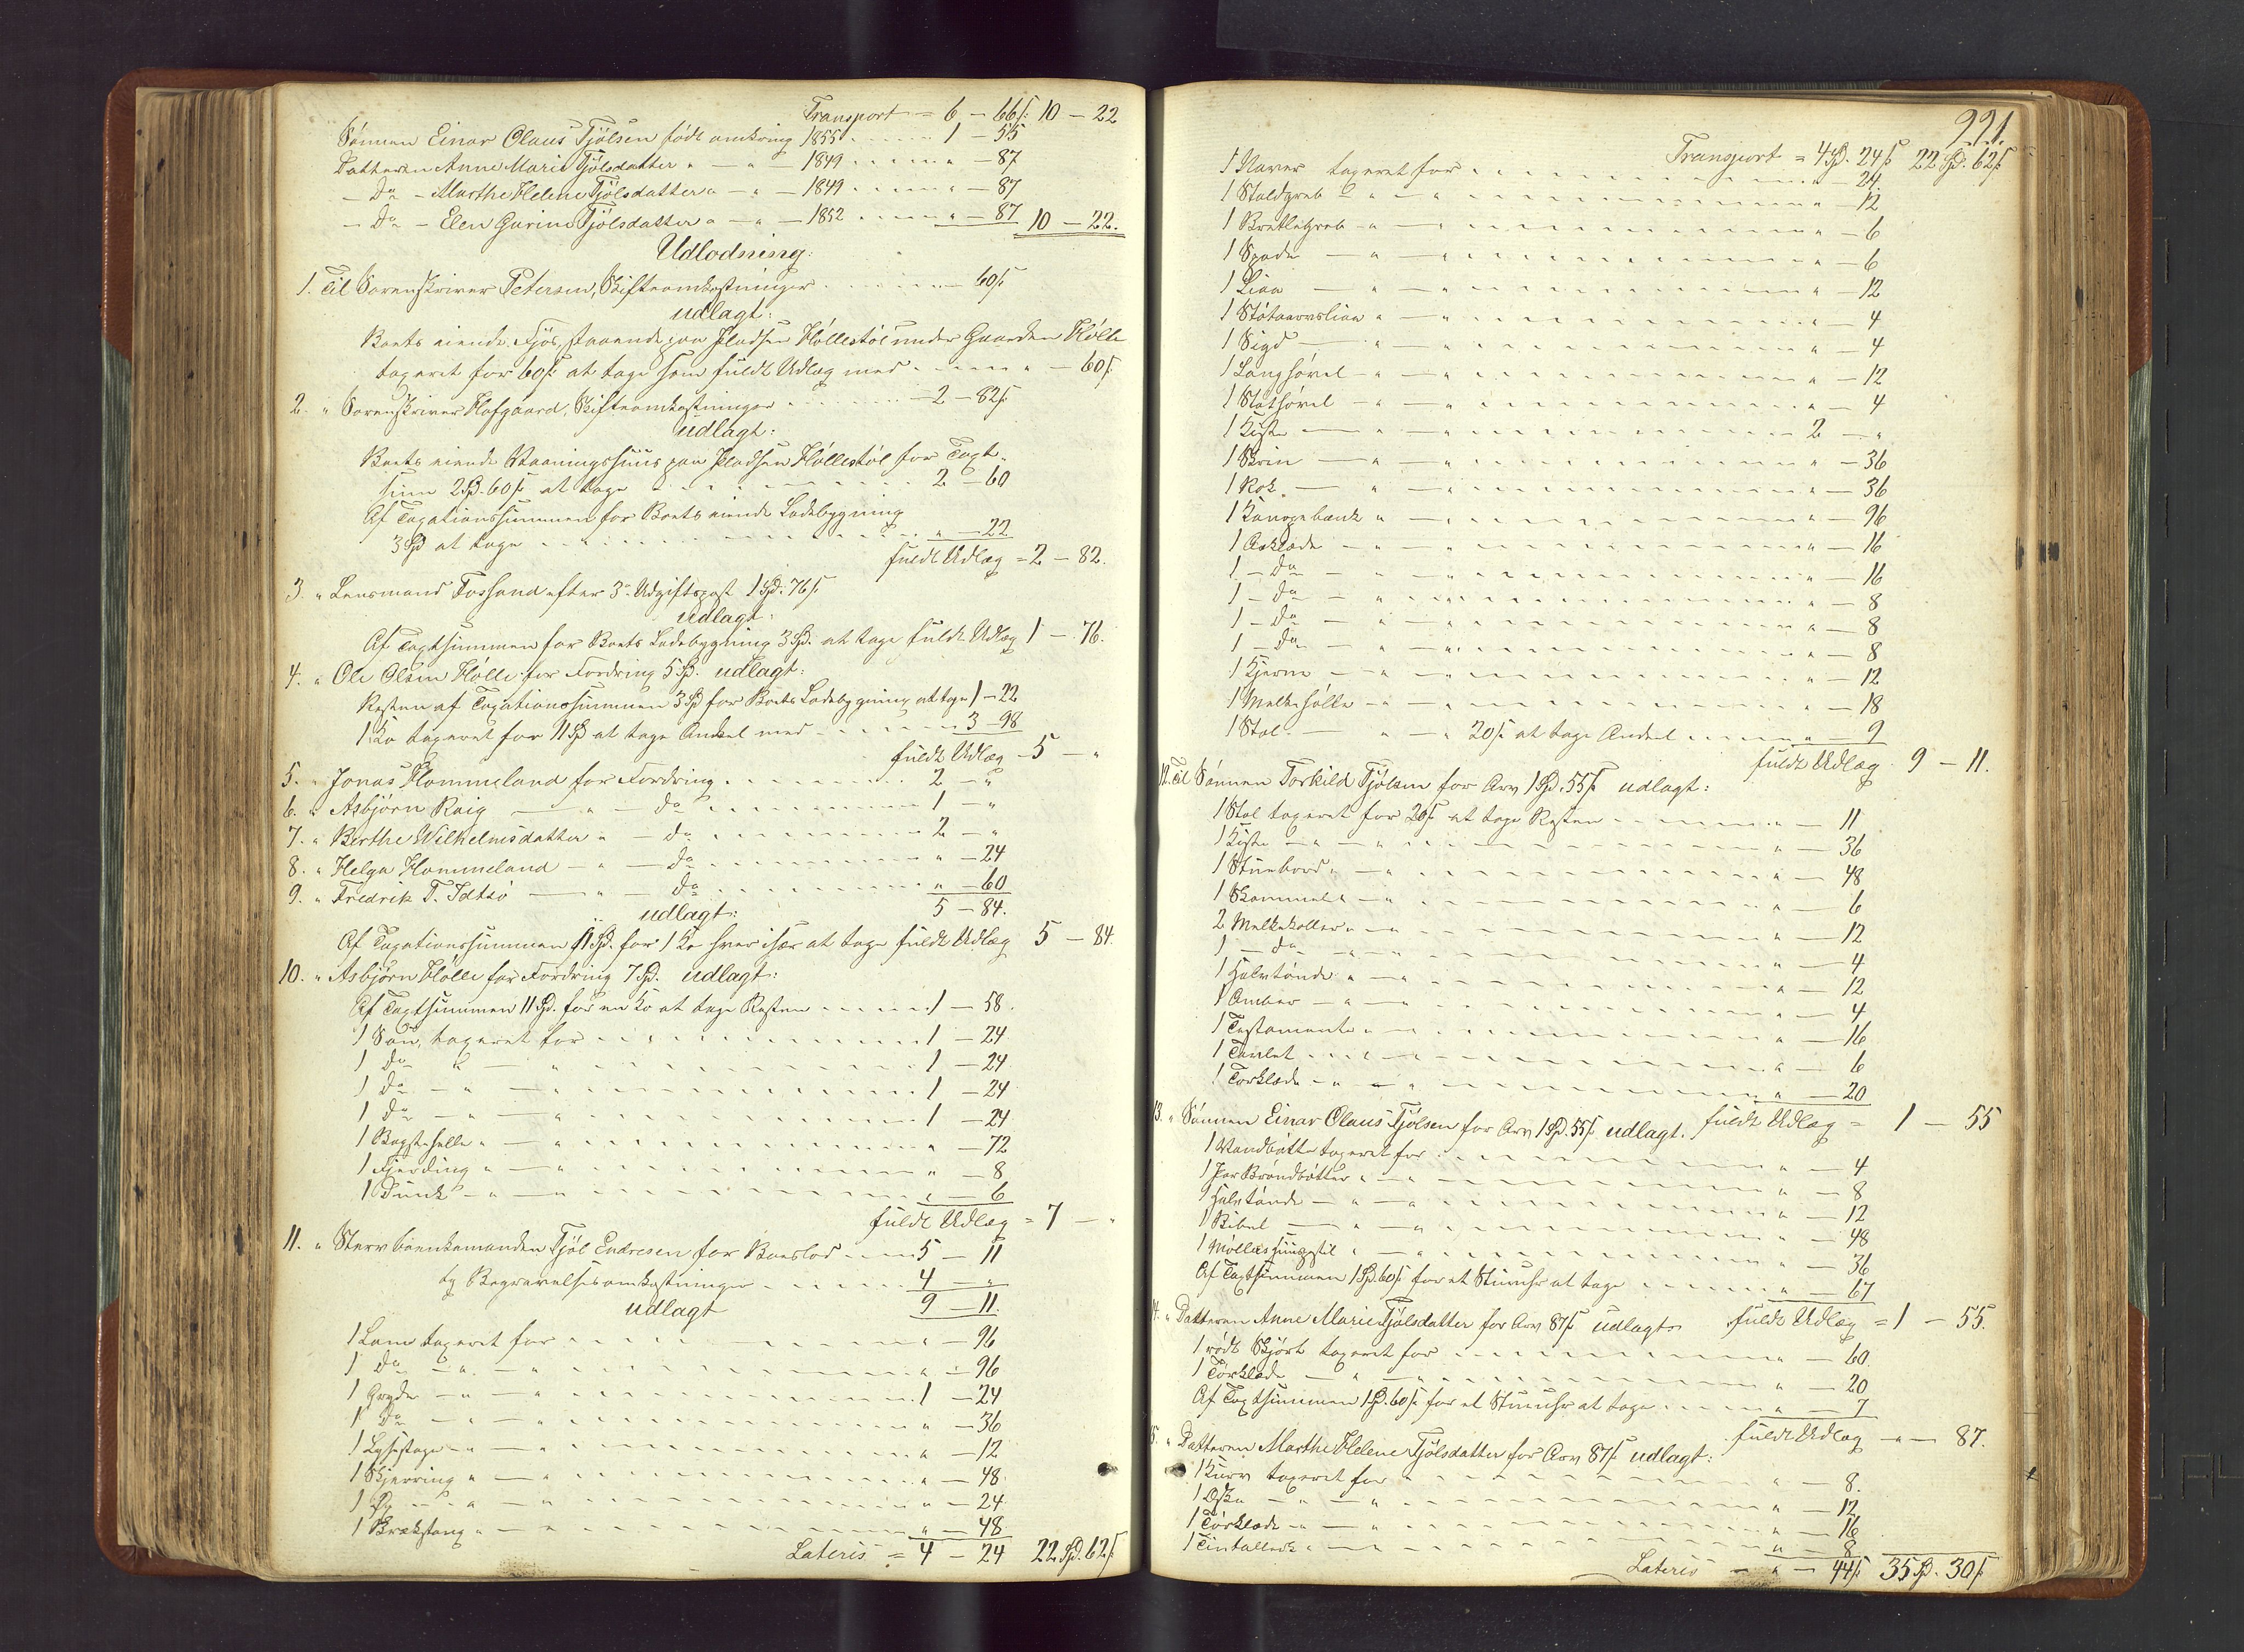 Transport = 6 - 66ſ. 10 - 22
Sønnen Einar Olaus Tjølsen født omkring 1855 . . . . 1 - 55
Datteren Anne Marie Tjølsdatter " — " — 1849 . . . . " - 87
— Do — Marthe Helene Tjølsdatter " — " — 1849 . . . . " - 87
— Do — Elen Gurine Tjølsdatter " — " — 1852 . . . . " - 87 10 - 22.
Udlodning:
1. Til Sorenskriver Petersen, Skifteomkostninger . . . . — 60ſ
udlagt:
Boets eiende Fjøs, staaende paa Pladsen Høllestøl under Gaarden Hølle
taxeret for 60ſ at tage som fuldt Udlæg med . . . . " — 60ſ
2. " Sorenskriver Hofgaard, Skifteomkostninger . . . . 2 - 82ſ
udlagt:
Boets eiende Vaaningshuus paa Pladsen Høllestøl for Taxt-
sum 2 Sp. 60ſ at tage . . . . 2 - 60
Af Taxationssummen for Boets eiende Ladebygning
3 Sp at tage . . . . " — 22
fuldt Udlæg = 2 - 82.
3. " Lensmand Fossand efter 3die Udgiftspost 1 Sp. 76ſ
udlagt:
Af Taxtsummen for Boets Ladebygning 3 Sp. at tage fuldt Udlæg 1 - 76.
4. " Ole Olsen Hølle for Fordring 5 Sp. udlagt:
Resten af Taxationssummen 3 Sp for Boets Ladebygning at tage 1 - 22
1 Ko taxeret for 11 Sp at tage Andel med . . . . 3 - 98
fuldt Udlæg - 5 - "
5. " Jonas Hommeland for Fordring . . . . 2 - "
6. " Asbjørn Roig — " — do . . . . 1 - "
7. " Berthe Wilhelmsdatter " — do . . . . 2 - "
8. " Helga Hommeland — " — do . . . . " - 24
9. " Fredrik T. Idtsø — " — do . . . . " - 60
udlagt: 5 - 84.
Af Taxationssummen 11 Sp. for 1 Ko hver især at tage fuldt Udlæg 5 - 84.
10. " Asbjørn Hølle for Fordring 7 Sp. udlagt:
Af Taxtsummen 11 Sp. for en Ko at tage Resten . . . . 1 - 58.
1 Sau, taxeret for . . . . 1 - 24
1 do " — " . . . . 1 - 24
1 do — " — " . . . . 1 - 24
1 do — " — " . . . . 1 - 24
1 Bagstehelle " — " . . . . " - 72
1 Fjerding " — " . . . . " - 8
1 Dunk — " — " . . . . " - 6
fuldt Udlæg = 7 - "
11. " Stervboenkemanden Tjøl Endresen for Boeslod . . . . 5 - 11
og Begravelsesomkostninger . . . . 4 - "
udlagt 9 - 11.
1 Lam taxeret for . . . . " - 96
1 do — " — " . . . . " - 96
1 Gryde — " — " . . . . 1 - 24
1 Do — " — " . . . . " - 36
1 Lysestage — " — " . . . . " - 12
1 Skjerring " — " . . . . " - 48
1 Øx — " — " . . . . " - 24
1 Brækstang " — " . . . . " - 48
Lateris = 4 - 24 22 Sp. 62ſ.
221.
Transport = 4 Sp. 24ſ 22 Sp. 62ſ
1 Naver taxeret for . . . . " - 24.
1 Staldgreb " — " . . . . " - 12
1 Bretlegreb — " . . . . " - 6
1 Spade — " — . . . . " - 6
1 Liaa — " — " . . . . " - 12
1 Støtaarvsliaa " — " . . . . " - 4
1 Sigd — " — " . . . . " - 4
1 Langhøvel — " — " . . . . " - 12
1 Støthøvel — " — " . . . . " - 4
1 Kiste — " — " . . . . 2 - "
1 Skrin — " — " . . . . " - 36
1 Rok — " — " . . . . " - 36
1 Kanapebænk " — " . . . . " - 96
1 Aaklæde — " — " . . . . " - 16
1 — do — " — " . . . . " - 16
1 — do — " — " . . . . " - 8
1 — Do — " — " . . . . " - 8
1 — Do — " — " . . . . " - 8
1 Kjerne — " — " . . . . " - 12
1 Melkehølle — " — " . . . . " - 18
1 Stol — " — " 20ſ at tage Andeel . . . . " - 9
fuldt Udlæg 9 - 11.
12. Til Sønnen Torkild Tjølsen for Arv 1 Sp. 55ſ udlagt:
1 Stol taxeret for 20ſ at tage Resten . . . . " - 11
1 Kiste — " — " . . . . " - 36
1 Stuebord " — " . . . . " - 48
1 Skammel " — " . . . . " - 6
2 Melkekoller " — " . . . . " - 12
1 — do — " — " . . . . " - 4
1 Halvtønde " — " . . . . " - 12
1 Ambar — " — " . . . . " - 4
1 Testamente " — " . . . . " - 16
1 . . . . " - 6
1 Tørklæde — " — " . . . . " - 20
fuldt Udlæg = 1 - 55
13. " Sønnen Einar Olaus Tjølsen for Arv 1 Sp. 55ſ udlagt.
1 Vandbøtte taxeret for . . . . " - 4
1 Par Brøndbøtter " — " . . . . " - 8
1 Halvtønde — " — " . . . . " - 12
1 Bibel — " — " . . . . " - 48
1 Møllers Huuspostil " — " . . . . " - 36
Af Taxtsummen 1 Sp. 60ſ for et Stueuhr at tage . . . . " - 67
fuldt Udlæg = 1 - 55.
14. " Datteren Anne Marie Tjølsdatter for Arv 87ſ udlagt:
1 rødt Skjørt taxeret for . . . . " - 60.
1 Tørklæde — " — " . . . . " - 20
Af Taxtsummen 1 Sp. 60ſ for et Stueuhr at tage . . . . " - 7
fuldt Udlæg - " - 87.
15. " Datteren Marthe Helene Tjølsdatter for Arv 87ſ udlagt:
1 Kurv taxeret for . . . . " - 8.
1 Øske — " — " . . . . " - 12
1 Tørklæde — " — " . . . . " - 16
1 Tintallerk " — " . . . . " - 8
Lateris — " — 44ſ 35 Sp. 30ſ